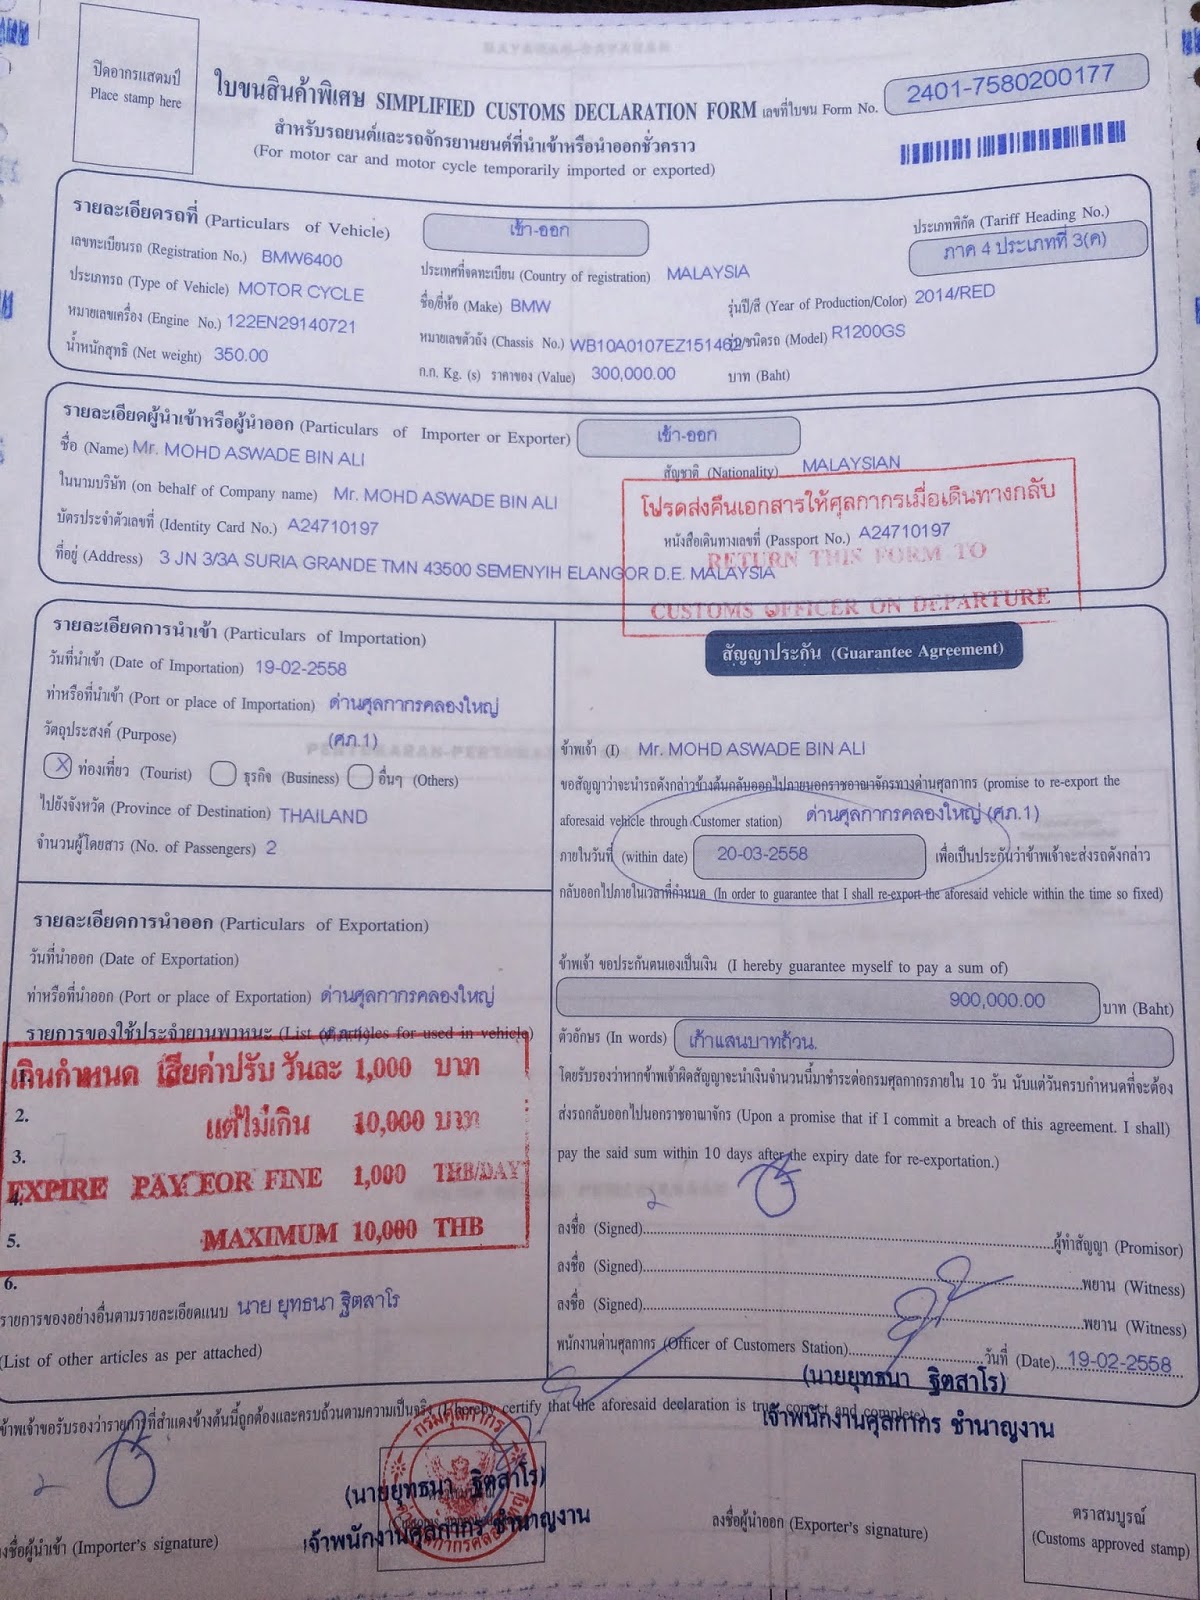 ปิดอากรแสตมป์
Place stamp here
ใบขนสินค้าพิเศษ SIMPLIFIED CUSTOMS DECLARATION FORM เลขที่ใบขน Form No. 2401-7580200177
สำหรับรถยนต์และรถจักรยานยนต์ที่นำเข้าหรือนำออกชั่วคราว
(For motor car and motor cycle temporarily imported or exported)
รายละเอียดรถที่ (Particulars of Vehicle) เข้า-ออก ประเภทพิกัด (Tariff Heading No.)
ภาค 4 ประเภทที่ 3(ค)
เลขทะเบียนรถ (Registration No.) BMW6400 ประเทศที่จดทะเบียน (Country of registration) MALAYSIA
ประเภทรถ (Type of Vehicle) MOTOR CYCLE ชื่อ/ยี่ห้อ (Make) BMW รุ่นปี/สี (Year of Production/Color) 2014/RED
หมายเลขเครื่อง (Engine No.) 122EN29140721 หมายเลขตัวถัง (Chassis No.) WB10A0107EZ151462 รุ่น/ชนิดรถ (Model) R1200GS
น้ำหนักสุทธิ (Net weight) 350.00 ก.ก. Kg. (s) ราคาของ (Value) 300,000.00 บาท (Baht)
รายละเอียดผู้นำเข้าหรือผู้นำออก (Particulars of Importer or Exporter) เข้า-ออก
ชื่อ (Name) Mr. MOHD ASWADE BIN ALI สัญชาติ (Nationality) MALAYSIAN
ในนามบริษัท (on behalf of Company name) Mr. MOHD ASWADE BIN ALI
โปรดส่งคืนเอกสารให้ศุลกากรเมื่อเดินทางกลับ
บัตรประจำตัวเลขที่ (Identity Card No.) A24710197 หนังสือเดินทางเลขที่ (Passport No.) A24710197
RETURN THIS FORM TO
ที่อยู่ (Address) 3 JN 3/3A SURIA GRANDE TMN 43500 SEMENYIH ELANGOR D.E. MALAYSIA
CUSTOMS OFFICER ON DEPARTURE
รายละเอียดการนำเข้า (Particulars of Importation)
วันที่นำเข้า (Date of Importation) 19-02-2558
ท่าหรือที่นำเข้า (Port or place of Importation) ด่านศุลกากรคลองใหญ่
วัตถุประสงค์ (Purpose) (ศภ.1)
X ท่องเที่ยว (Tourist) ธุรกิจ (Business) อื่นๆ (Others)
ไปยังจังหวัด (Province of Destination) THAILAND
จำนวนผู้โดยสาร (No. of Passengers) 2
รายละเอียดการนำออก (Particulars of Exportation)
วันที่นำออก (Date of Exportation)
ท่าหรือที่นำออก (Port or place of Exportation) ด่านศุลกากรคลองใหญ่
รายการของใช้ประจำยานพาหนะ (List of articles for used in vehicle)
เกินกำหนด เสียค่าปรับ วันละ 1,000 บาท
2.
แต่ไม่เกิน 10,000 บาท
3.
EXPIRE PAY FOR FINE 1,000 THB/DAY
4.
MAXIMUM 10,000 THB
5.
6.
รายการของอย่างอื่นตามรายละเอียดแนบ นาย ยุทธนา ฐิตสาโร
(List of other articles as per attached)
สัญญาประกัน (Guarantee Agreement)
ข้าพเจ้า (I) Mr. MOHD ASWADE BIN ALI
ขอสัญญาว่าจะนำรถดังกล่าวข้างต้นกลับออกไปภายนอกราชอาณาจักรทางด่านศุลกากร (promise to re-export the
aforesaid vehicle through Customer station) ด่านศุลกากรคลองใหญ่ (ศภ.1)
ภายในวันที่ (within date) 20-03-2558 เพื่อเป็นประกันว่าข้าพเจ้าจะส่งรถดังกล่าว
กลับออกไปภายในเวลาที่กำหนด (In order to guarantee that I shall re-export the aforesaid vehicle within the time so fixed)
ข้าพเจ้า ขอประกันตนเองเป็นเงิน (I hereby guarantee myself to pay a sum of)
900,000.00 บาท (Baht)
ตัวอักษร (In words) เก้าแสนบาทถ้วน.
โดยรับรองว่าหากข้าพเจ้าผิดสัญญาจะนำเงินจำนวนนี้มาชำระต่อกรมศุลกากรภายใน 10 วัน นับแต่วันครบกำหนดที่จะต้อง
ส่งรถกลับออกไปนอกราชอาณาจักร (Upon a promise that if I commit a breach of this agreement. I shall)
pay the said sum within 10 days after the expiry date for re-exportation.)
ลงชื่อ (Signed) ผู้ทำสัญญา (Promisor)
ลงชื่อ (Signed) พยาน (Witness)
ลงชื่อ (Signed) พยาน (Witness)
พนักงานด่านศุลกากร (Officer of Customs Station) วันที่ (Date) 19-02-2558
(นายยุทธนา ฐิตสาโร)
เจ้าพนักงานศุลกากร ชำนาญงาน
ข้าพเจ้าขอรับรองว่ารายการที่สำแดงข้างต้นนี้ถูกต้องและครบถ้วนตามความเป็นจริง (I hereby certify that the aforesaid declaration is true, correct and complete)
กรมศุลกากร
(นายยุทธนา ฐิตสาโร)
เจ้าพนักงานศุลกากร ชำนาญงาน
ด่านศุลกากรคลองใหญ่
ลงชื่อผู้นำเข้า (Importer's signature) ลงชื่อผู้นำออก (Exporter's signature)
ตราสมบูรณ์
(Customs approved stamp)